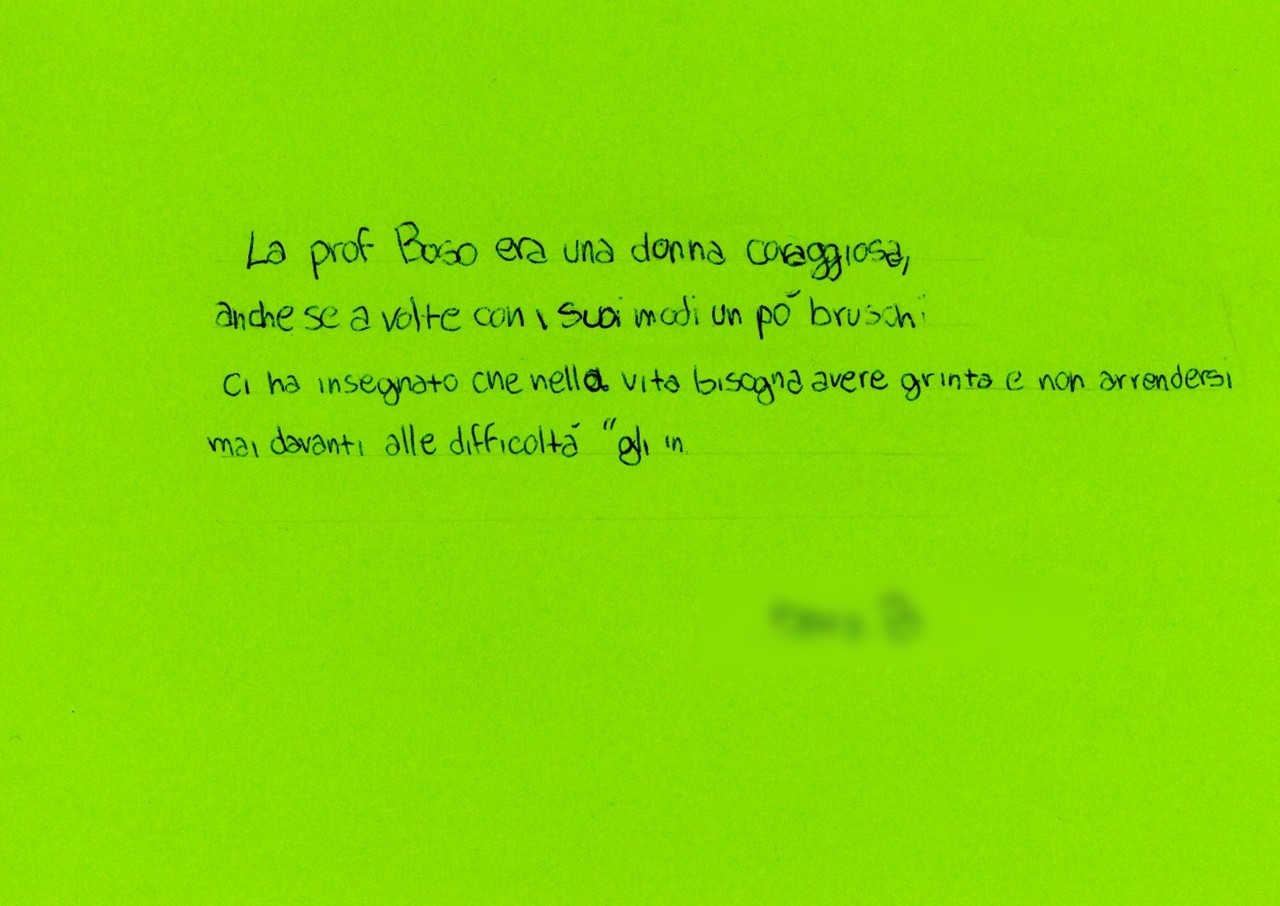 La prof Boso era una donna coraggiosa,
anche se a volte con i suoi modi un pó bruschi
ci ha insegnato che nella vita bisogna avere grinta e non arrendersi
mai davanti alle difficoltá "gli in